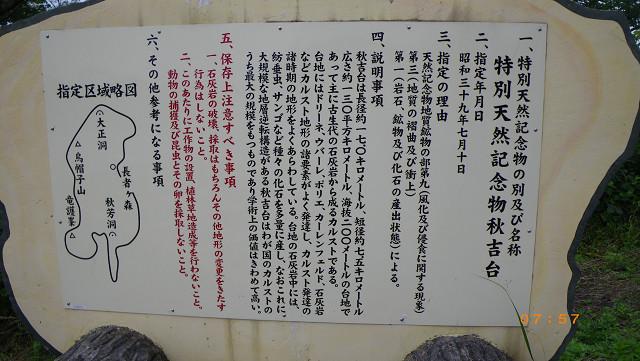 一、特別天然記念物の別及び名称
特別天然記念物秋吉台
二、指定年月日
昭和三十九年七月十日
三、指定の理由
天然記念物地質鉱物の部第九（風化及び侵食に関する現象）
第三（地質の褶曲及び衝上）
第一（岩石、鉱物及び化石の産出状態）による。
四、説明事項
秋吉台は長径約一七〇キロメートル、短径約七五キロメートル
広さ約一三〇平方キロメートル、海抜二〇〇メートルの台地で
あって主に古生代の石灰岩から成るカルストである。
台地にはドリーネ、ウバーレ、ポリエ、カーレンフェルド、石灰岩
などカルスト地形の諸要素がよく発達し、カルスト発達の
諸時期の地形をよくあらわしている。台地の石灰岩中には、
紡垂虫、サンゴなど種々の化石を多量に産し、なおこれに、
大規模な地層逆転構造がある秋吉台はわが国のカルストの
うち最大の規模をもつものであり学術上の価値はきわめて高い。
五、保存上注意すべき事項
一、石灰岩の破壊、採取はもちろんその他地形の変更をきたす
行為はしないこと。
二、このあたりに工作物の設置、植林草地造成等を行わないこと。
動物の捕獲及び昆虫とその卵を採取しないこと。
六、その他参考になる事項
指定区域略図
大正洞
長者ヶ森
烏帽子山
秋芳洞
竜護峯
07:57